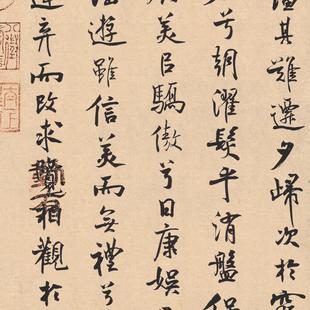 其難遷夕歸次於窮
兮朝濯髮乎洧盤保
美以驕傲兮日康娛
淫遊雖信美而無禮兮
違棄而改求覽相觀於